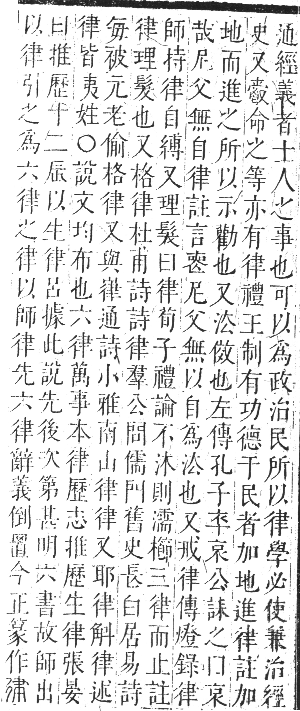 通經義者士人之事也可以爲政治民所以律學必使兼治經
史又爵命之等亦有律禮王制有功德于民者加地進律註加
地而進之所以示勸也又法傚也左傳孔子卒哀公誄之曰哀
哉尼父無自律註言喪尼父無以自爲法也又戒律傳燈錄律
師持律自縛又理髮曰律荀子禮論不沐則濡櫛三律而止註
律理髮也又格律杜甫詩詩律羣公問儒門舊史長白居易詩
每被元老偷格律又與嵂通詩小雅南山律律又耶律斛律述
律皆夷姓〇說文均布也六律萬事本律歷志推歷生律張晏
曰推歷十二辰以生律呂據此說先後次第甚明六書故師出
以律引之爲六律之律以師律先六律辭義倒置今正篆作𢔊